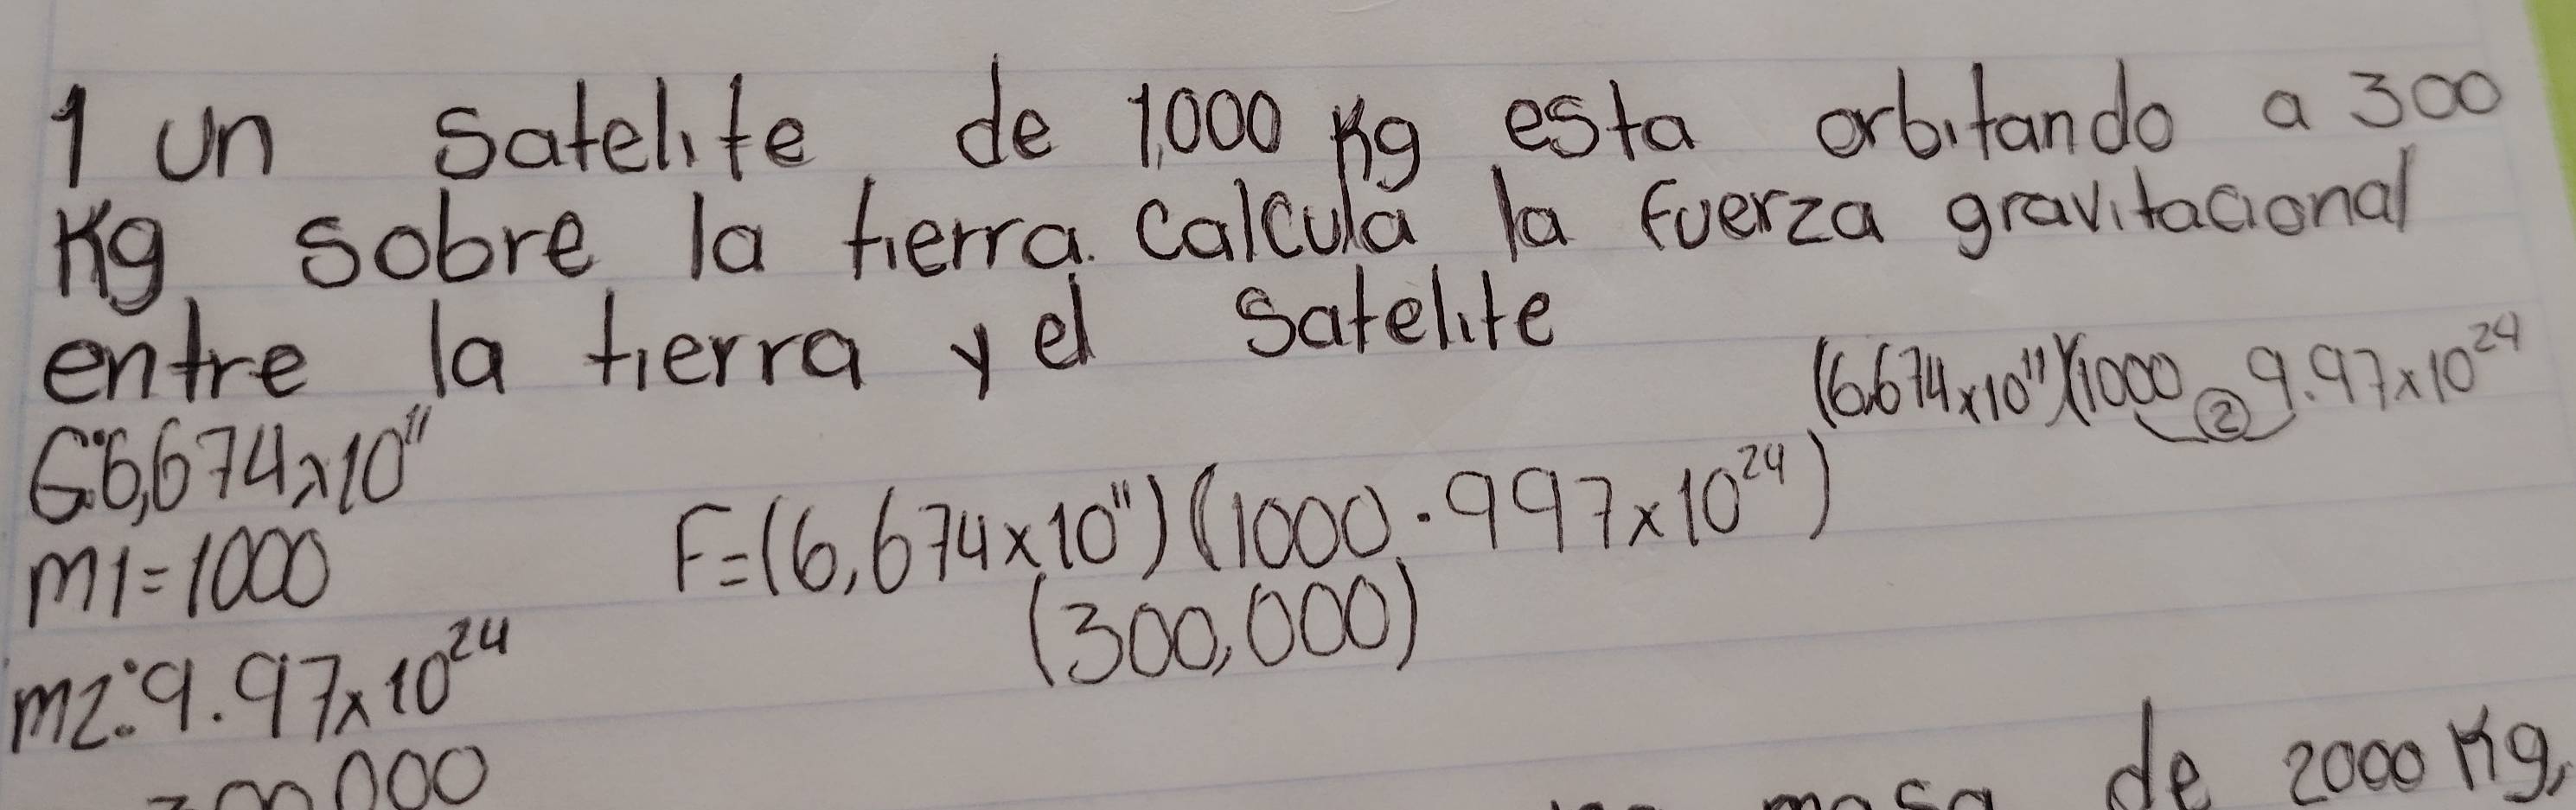 1 un satelite de 1,000 Kg esta orbitando a 300
Kg sobre la tierra. Calcula la fuerza gravitacional
entre la tierra y el satelite
(6.674x10¹¹)(1000 ② 9.97x10²⁴
G:6,674x10¹¹
F=(6,674x10¹¹)(1000.997x10²⁴)
(300,000)
m1=1000
m2:9.97x10²⁴
masa de 2000 Kg,